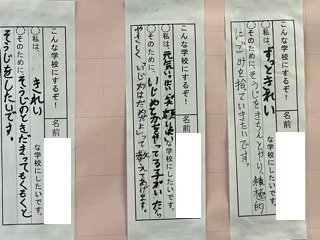 こんな学校にするぞ！
名前
○私は、
ずっときれい
な学校にしたいです。
○そのためにそうじをきちんとやり、積極的
にごみを拾っていきたいです。
こんな学校にするぞ！
名前
○私は、
な学校にしたいです。
○そのために、いじめとかをやってる子がいたら
やさしく、いじめはだめだよって教えてあげます。
こんな学校にするぞ！
名前
○私は、
きれい
な学校にしたいです。
○そのためにそうじのときだまってもくもくと
そうじをしたいです。